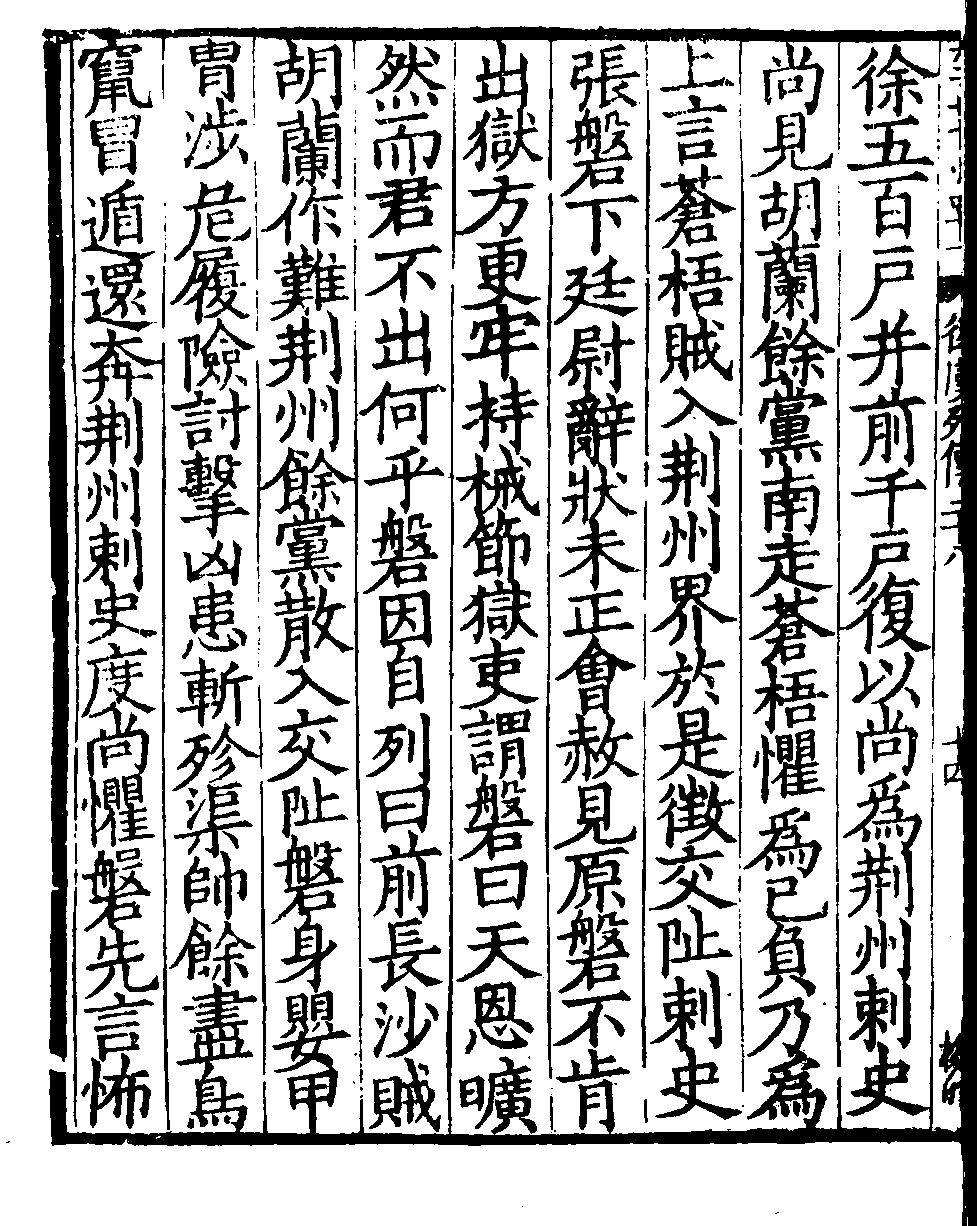 徐五百戸并前千戸復以尚為荆州刺史
尚見胡蘭餘黨南走蒼梧懼為已負乃為
上言蒼梧賊入荆州界於是徵交阯刺史
張磐下廷尉辭狀未正會赦見原磐不肯
出獄方更牢持械節獄吏謂磐曰天恩曠
然而君不出何乎磐因自列曰前長沙賊
胡蘭作難荆州餘黨散入交阯磐身嬰甲
胄涉危履險討擊凶患斬殄渠帥餘盡鳥
竄冒遁還奔荆州刺史度尚懼磐先言怖